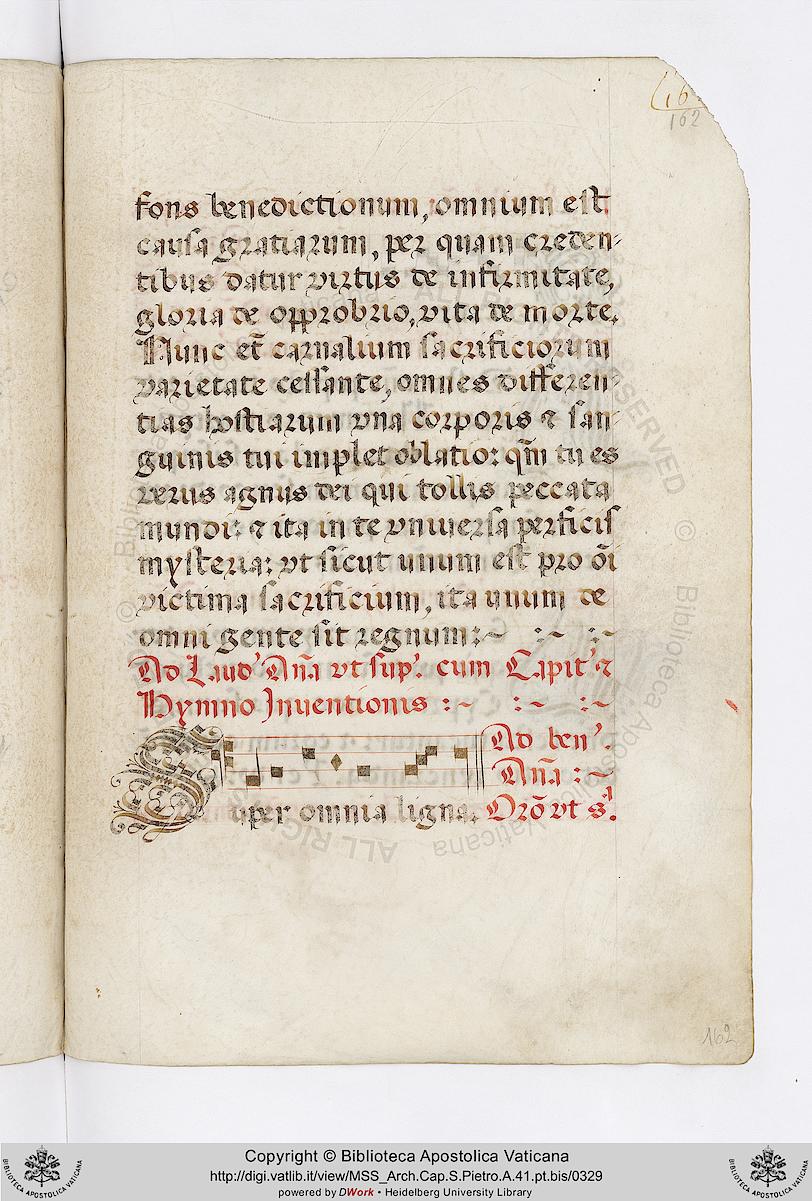 (16
162
fons benedictionum, omnium est
causa gratiarum, per quam creden-
tibus datur virtus de infirmitate,
gloria de opprobrio, vita de morte.
Nunc et carnalium sacrificiorum
varietate cessante, omnes differen-
tias hostiarum vna corporis & san-
guinis tui implet oblatio: qm̄ tu es
verus agnus dei qui tollis peccata
mundi: & ita in te vniuersa perficis
mysteria: vt sicut unum est pro oī
victima sacrificium, ita unum de
omni gente sit regnum:~ :~ :~
Ad Laud' Aña vt sup'. cum Capit' &
Hymno Inuentionis :~ :~ :~
Ad ben'.
Aña :~
Super omnia ligna. Orõ vt s'.
162
Copyright © Biblioteca Apostolica Vaticana
http://digi.vatlib.it/view/MSS_Arch.Cap.S.Pietro.A.41.pt.bis/0329
powered by DWork • Heidelberg University Library
BIBLIOTECA APOSTOLICA VATICANA
BIBLIOTECA APOSTOLICA VATICANA